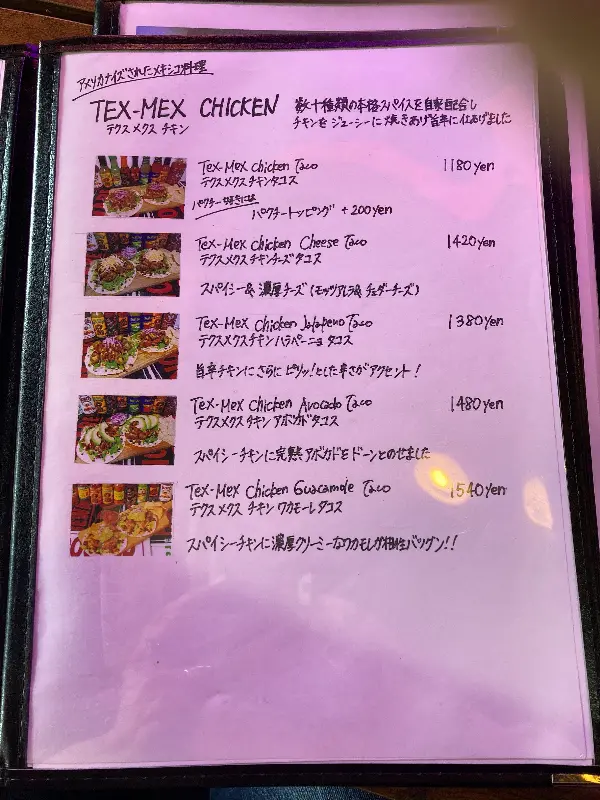 アメリカナイズされたメキシコ料理
TEX-MEX CHICKEN
テクス メクス チキン
数十種類の本格スパイスを自家配合し
チキンをジューシーに焼きあげ旨辛に仕あげました
Tex-Mex Chicken Taco 1180yen
テクスメクスチキンタコス
パクチー好きには
パクチートッピング +200yen
Tex-Mex Chicken Cheese Taco 1420yen
テクスメクスチキンチーズタコス
スパイシー&濃厚チーズ(モッツアレラ&チェダーチーズ)
Tex-Mex Chicken Jalapeno Taco 1380yen
テクスメクスチキンハラペーニョタコス
旨辛チキンにさらにピリッ!とした辛さがアクセント!
Tex-Mex Chicken Avocado Taco 1480yen
テクスメクスチキンアボカドタコス
スパイシーチキンに完熟アボカドをドーンとのせました
Tex-Mex Chicken Guacamole Taco 1540yen
テクスメクスチキンワカモーレタコス
スパイシーチキンに濃厚クリーミーなワカモレが相性バツグン!!